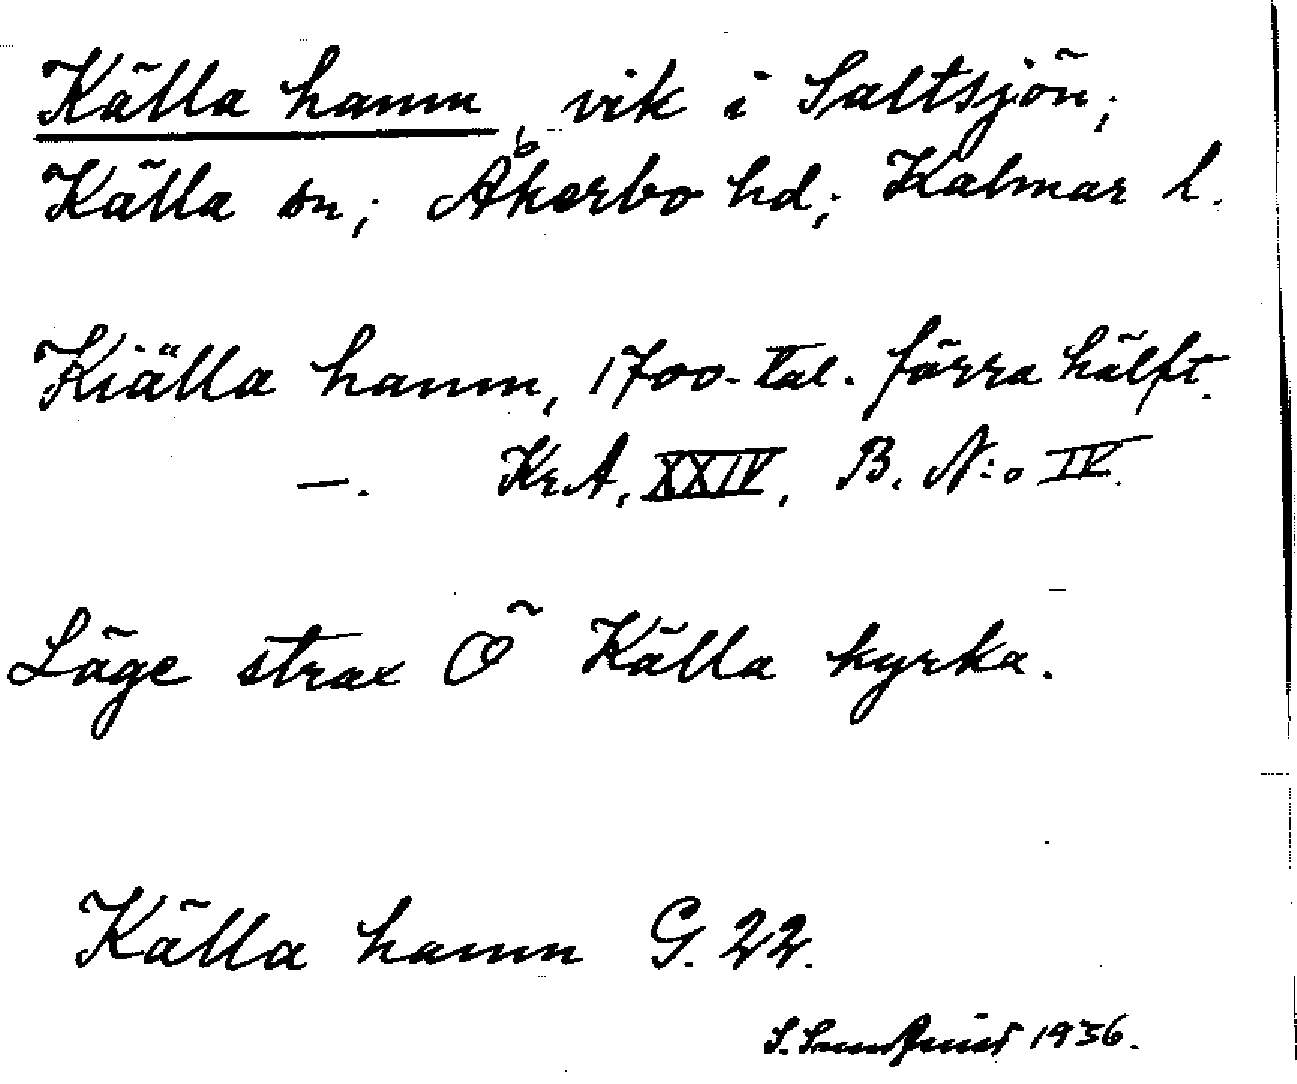 Källa hamn, vik i Saltsjön;
Källa sn; Åkerbo hd; Kalmar l.
Kiälla hamn, 1700-tal. förra hälft.
—. Kr.A, XXIV, B. N:o IV.
Läge strax Ö Källa kyrka.
Källa hamn G. 22.
S. Sundquist 1936.